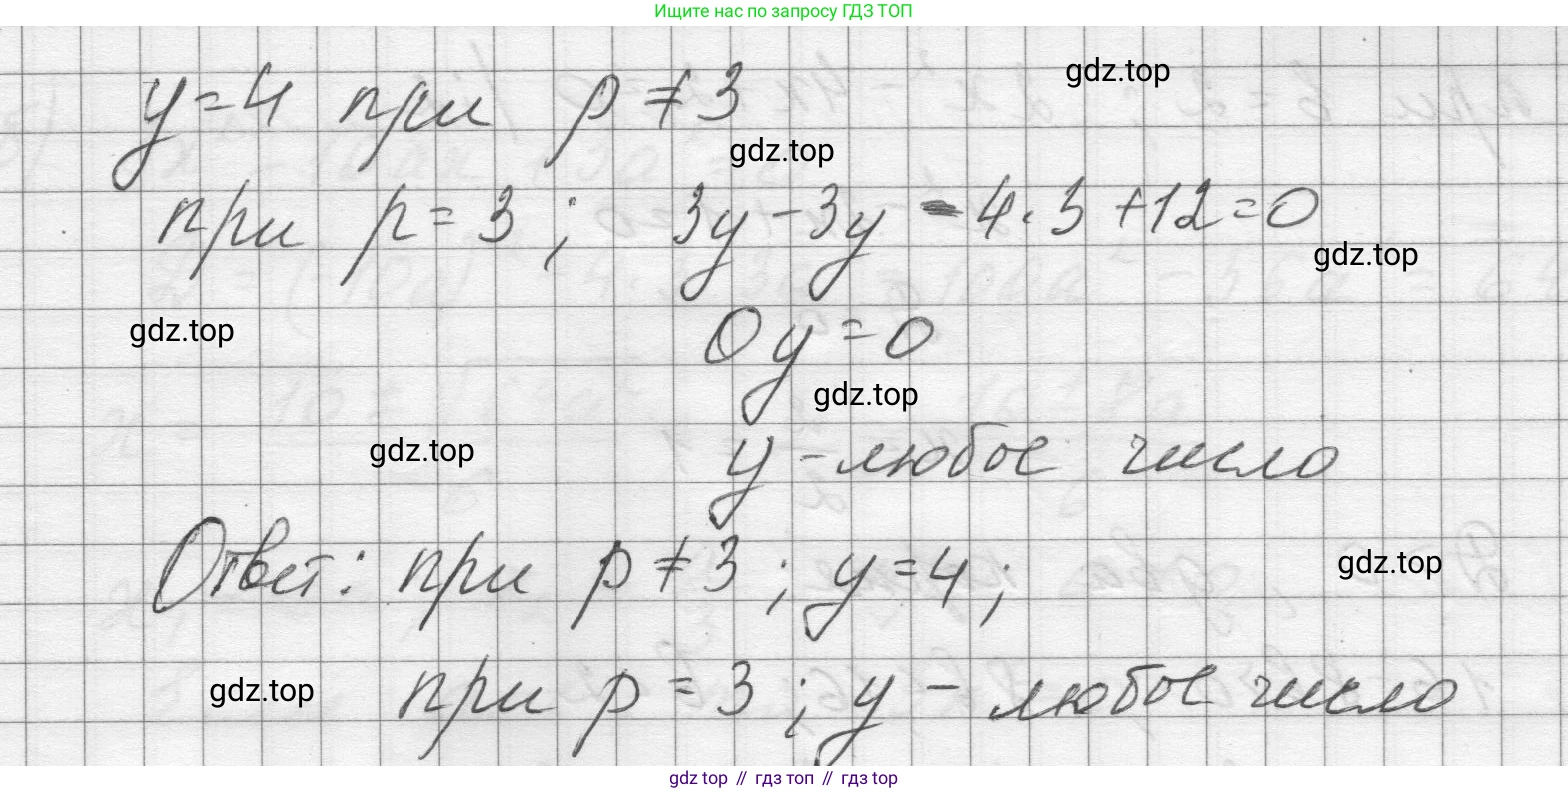 Ищите нас по запросу ГДЗ ТОП
gdz.top
y = 4 при p ≠ 3
gdz.top
при p = 3 ; 3y - 3y - 4·3 + 12 = 0
gdz.top
gdz.top
0y = 0
gdz.top
gdz.top
y - любое число
Ответ: при p ≠ 3 ; y = 4 ;
gdz.top
gdz.top
при p = 3 ; y - любое число
gdz top // гдз топ // гдз top